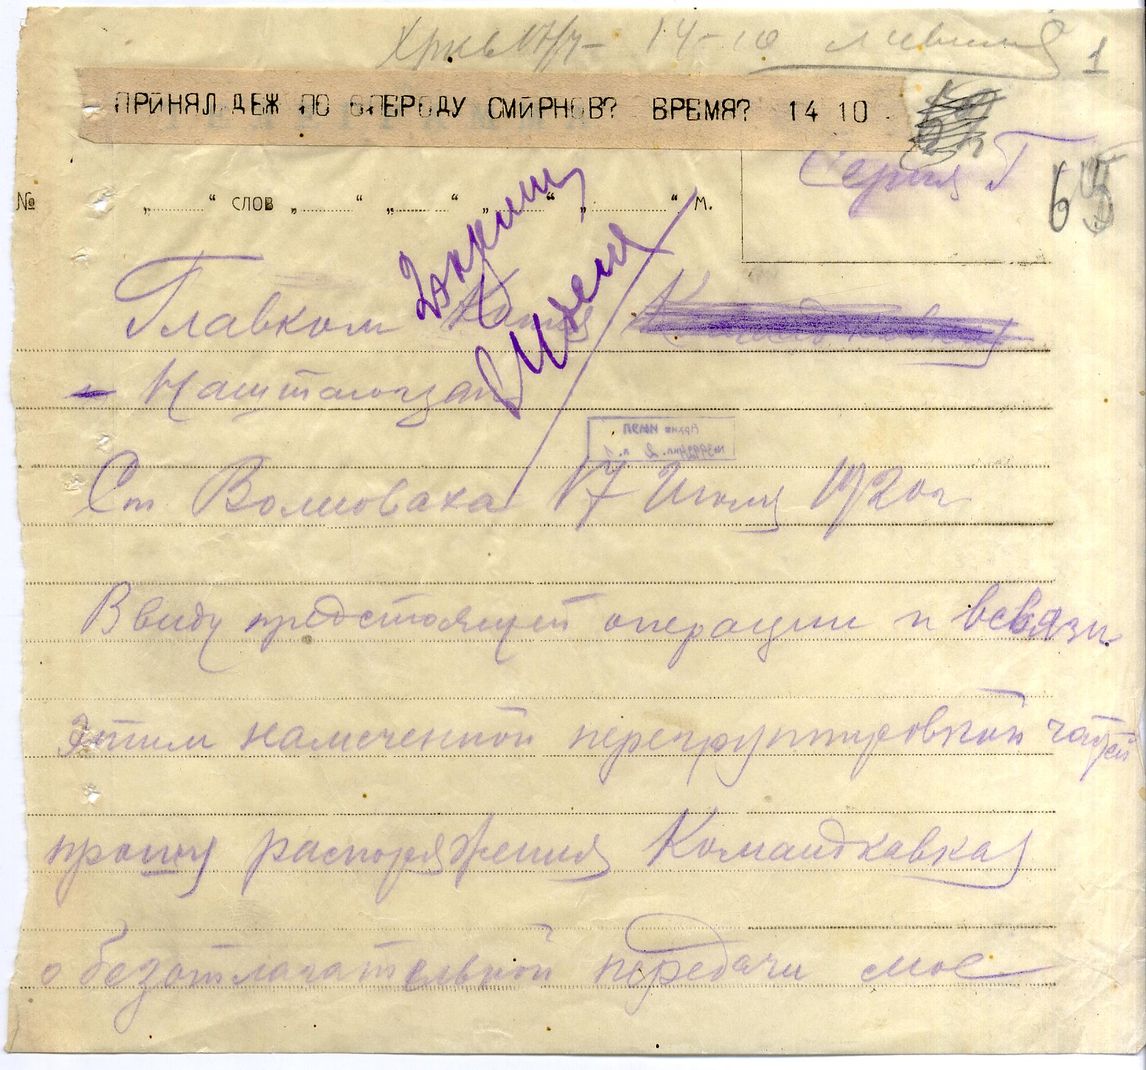 14-10
1
ПРИНЯЛ ДЕЖ ПО ОПЕРОДУ СМИРНОВ? ВРЕМЯ? 14 10
Серия Г
65
№ „ “ слов „ “ „ “ „ “ „ “ м.
Главком
Ст Волноваха 17 Июля 1920г
Ввиду предстоящей операции и всвязи
этим намеченной перегруппировкой частей
прошу распоряжения Командкавказ
о безотлагательной передачи мое